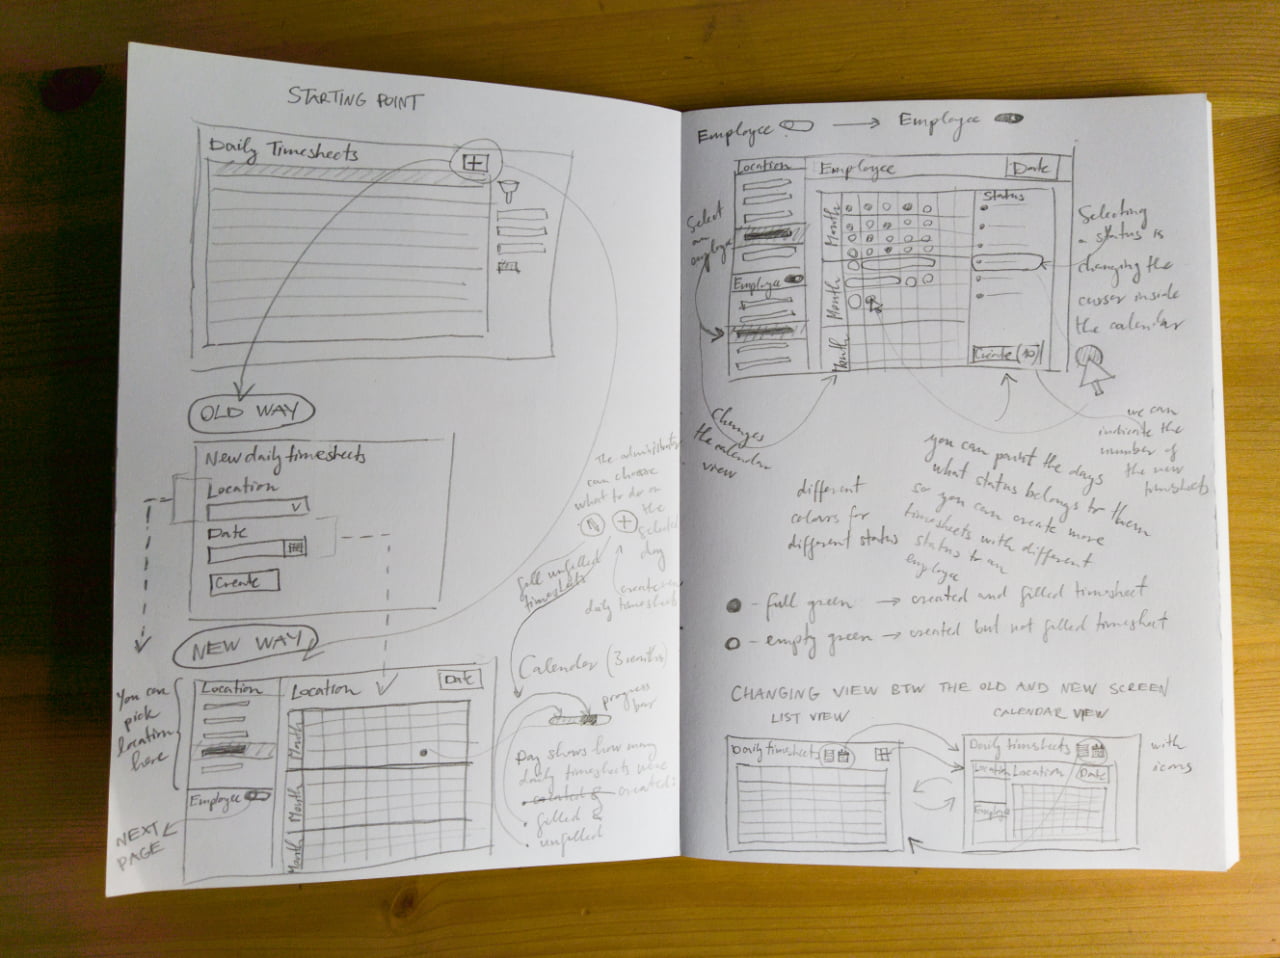 STARTING POINT
Daily Timesheets
+
OLD WAY
New daily timesheets
Location
Date
Create
The administrator
can choose
what to do on
the
selected
day
+
fill unfilled
timesheets
create new
daily timesheets
NEW WAY
You can
pick
location
here
Location
Employee
NEXT
PAGE
Location
Date
Month
Month
Month
Calendar (3 months)
progress
bar
Day shows how many
daily timesheets were
created:
• filled &
• unfilled
Employee
Employee
Select
an
employee
Location
Employee
Employee
Date
Month
Month
Month
Status
Create (10)
Selecting
a status is
changing the
cursor inside
the calendar
Changes
the calendar
view
we can
indicate the
number of
the new
timesheets
different
colours for
different status
you can paint the days
what status belongs to them
so you can create more
timesheets with different
status to an
employee
- full green → created and filled timesheet
- empty green → created but not filled timesheet
CHANGING VIEW BTW THE OLD AND NEW SCREEN
LIST VIEW
CALENDAR VIEW
Daily timesheets
Daily timesheets
Location
Location
Date
Employee
with
icons